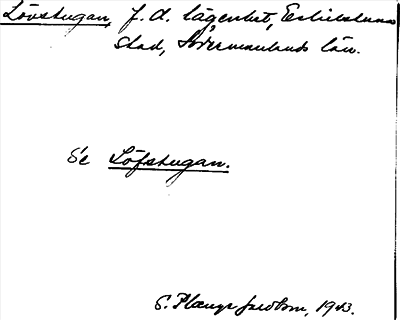 Lövstugan, f. d. lägenhet, Eskilstuna
stad, Södermanlands län.
Se Löfstugan.
S. Jacobson, 1943.